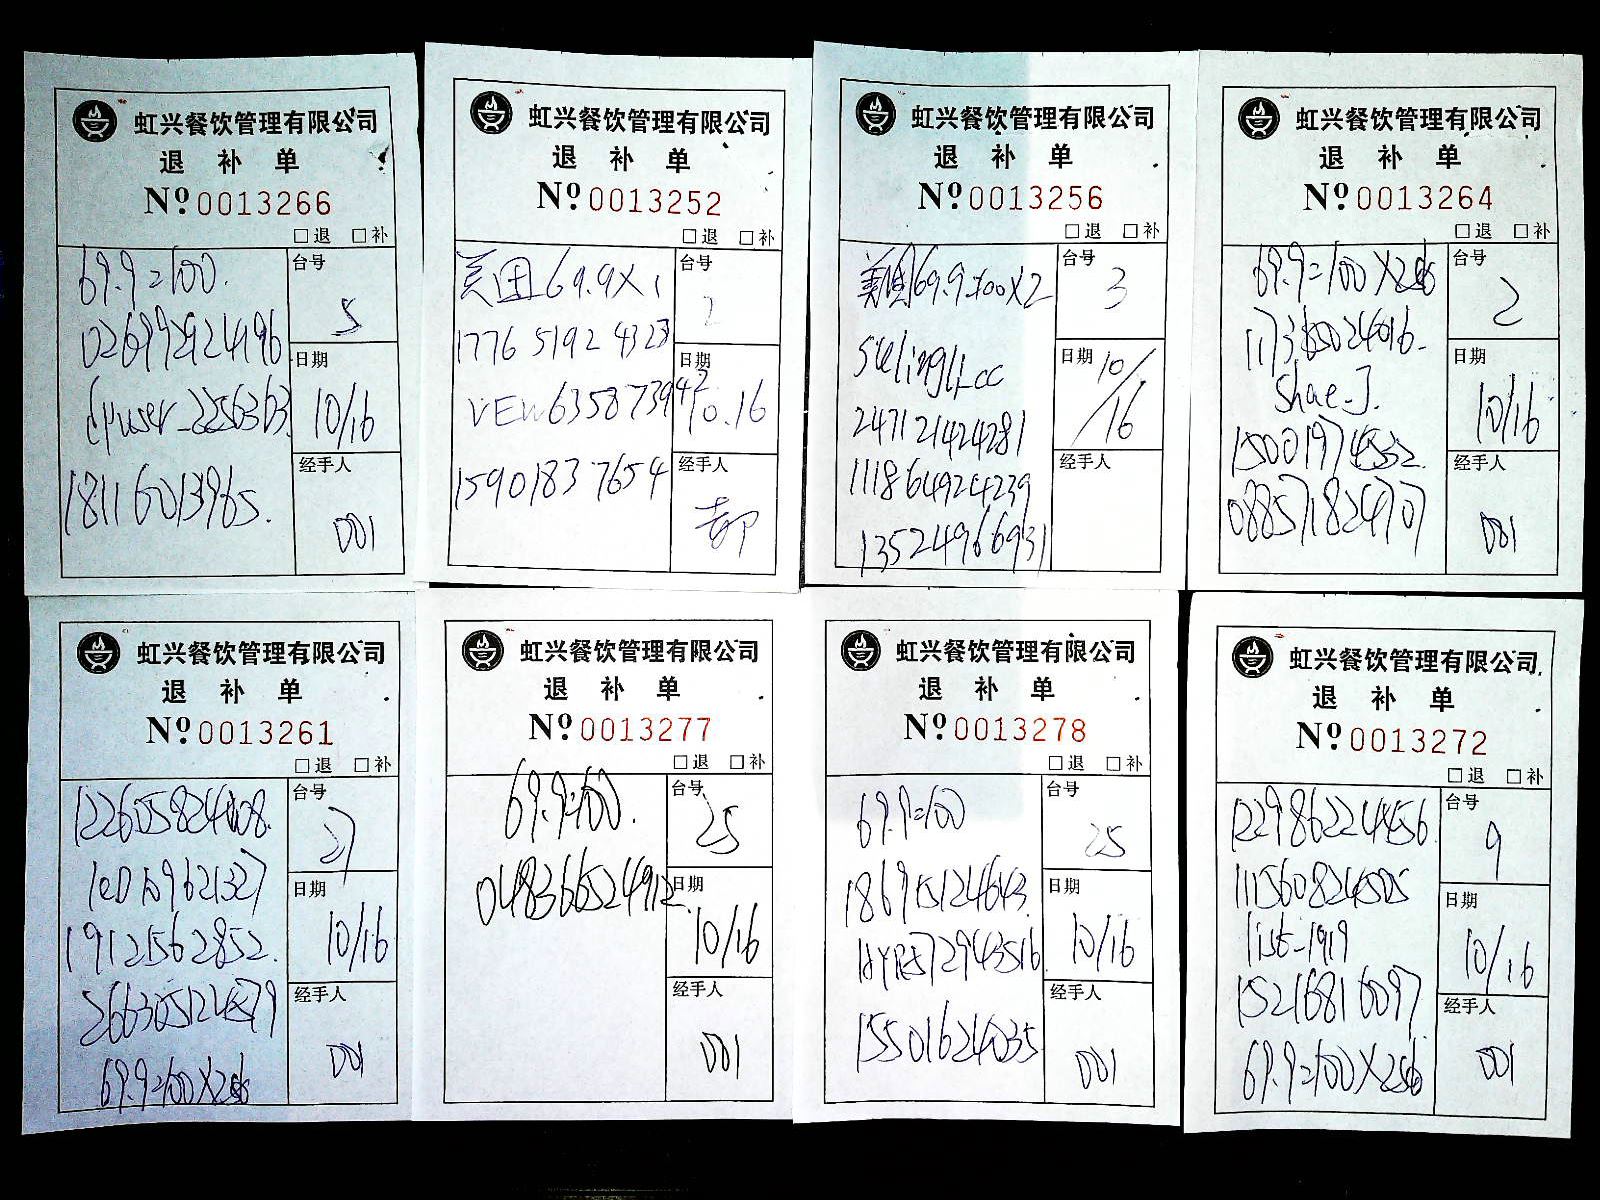 虹兴餐饮管理有限公司
退 补 单
Nº 0013266
□退 □补
69.9=100.
台号
5
026992924196
日期
10/16
18116013965.
经手人
001
虹兴餐饮管理有限公司
退 补 单
Nº 0013252
□退 □补
美团69.9X1
台号
2
1776 5192 4323
日期
10.16
VEW6358739442
经手人
15901837654
虹兴餐饮管理有限公司
退 补 单
Nº 0013256
□退 □补
美团69.9=100X2
台号
3
日期
10/16
247121424281
111864924239
13524966931
经手人
虹兴餐饮管理有限公司
退 补 单
Nº 0013264
□退 □补
69.9=100X2
台号
2
117365024016
日期
10/16
15001974532.
经手人
088571824707
001
虹兴餐饮管理有限公司
退 补 单
Nº 0013261
□退 □补
122605824408.
台号
27
日期
19121562852.
10/16
266305124579
经手人
001
69.9=100X2
虹兴餐饮管理有限公司
退 补 单
Nº 0013277
□退 □补
69.9=100.
台号
25
048366524912
日期
10/16
经手人
001
虹兴餐饮管理有限公司
退 补 单
Nº 0013278
□退 □补
69.9=100
台号
25
186915124643
日期
10/16
15501624035
经手人
001
虹兴餐饮管理有限公司
退 补 单
Nº 0013272
□退 □补
122986224456
台号
9
111560824505
日期
10/16
15216816097
经手人
001
69.9=100X2